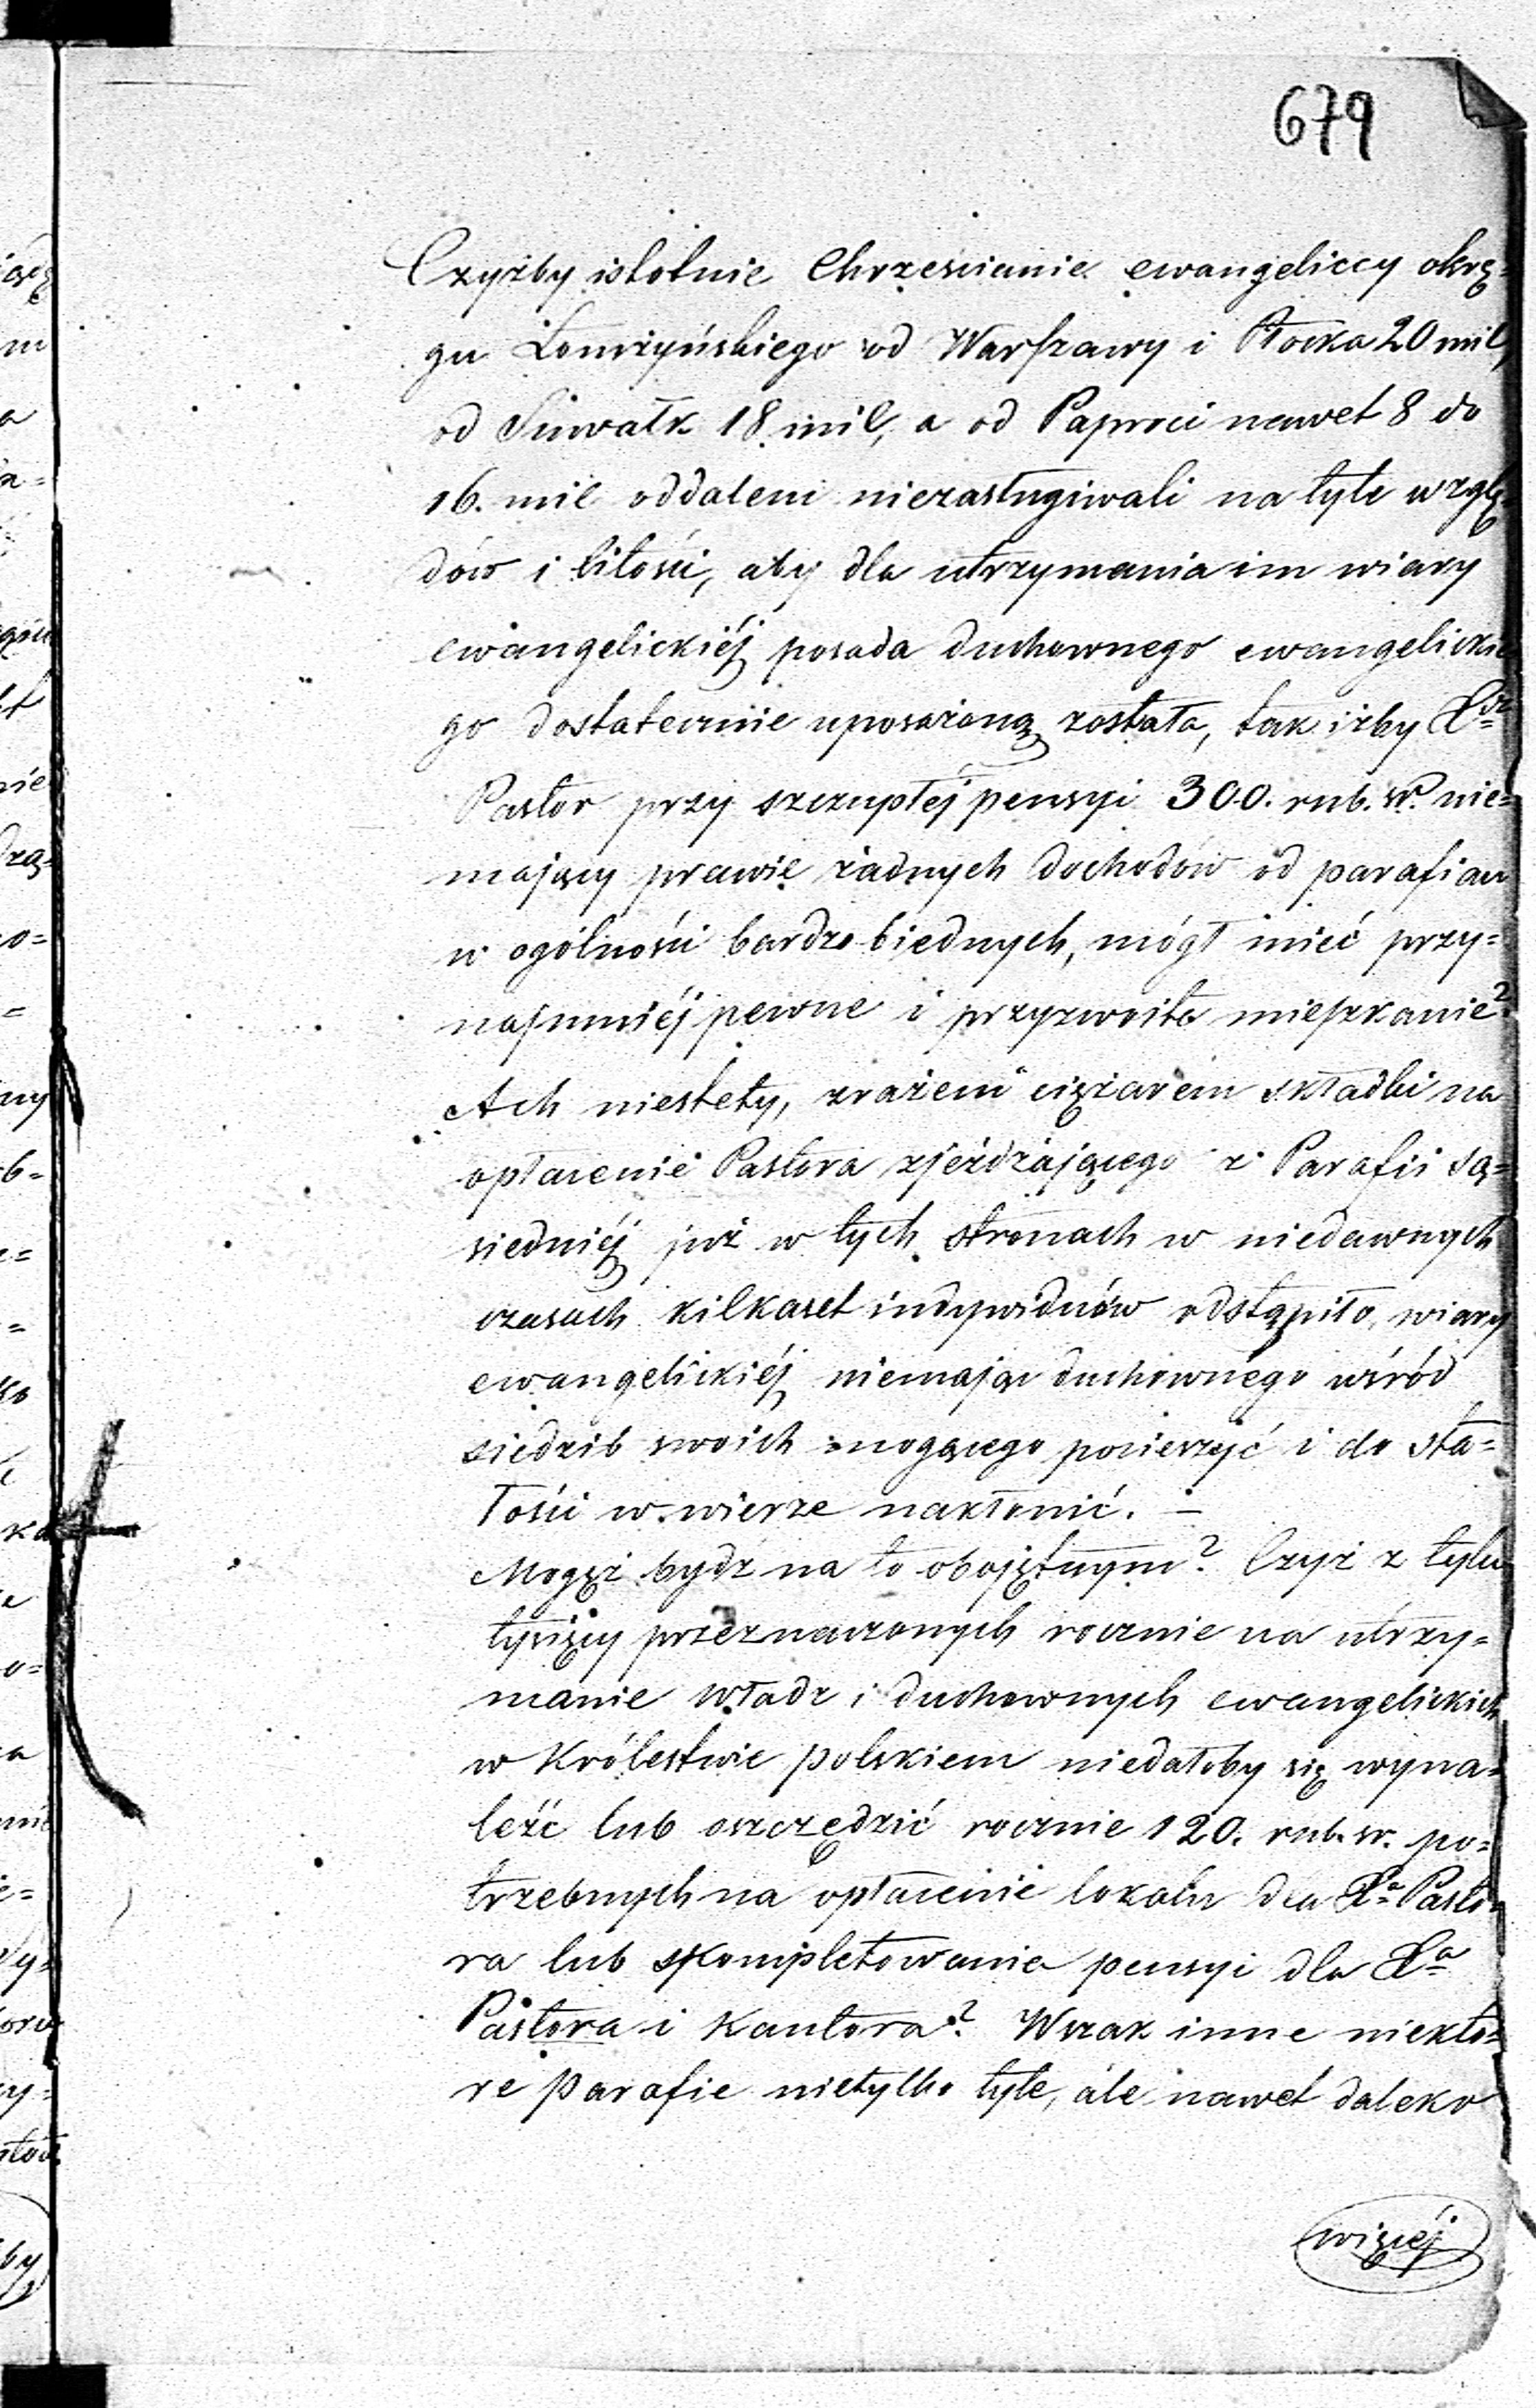 679
Czyżby istotnie Chrześcianie ewangeliccy okrę=
gu Łomżyńskiego od Warszawy i Płocka 20 mil,
od Suwałk 18. mil, a od Paproci nawet 8 do
16. mil oddaleni niezasługiwali na tyle wzglę
dów i litości, aby dla utrzymania im wiary
ewangelickiéj posada duchownego ewangelickie
go dostatecznie uposażoną została, tak iżby Xdz
Pastor przy szczupłéj pensyi 300. rub. sr. nie=
mający prawie żadnych dochodów od parafian
w ogólności bardzo biednych, mógł mieć przy=
najmniéj pewne i przyzwoite mieszkanie?
Ach niestety, zrażeni ciężarem składki na
opłacenie Pastora zjeżdżającego z Parafii są=
siedniéj już w tych stronach w niedawnych
czasach kilkaset indywiduów odstąpiło, wiary
ewangelickiéj niemając duchownego wśród
siedzib swoich mogącego pocieszyć i do sta=
łości w wierze nakłonić. –
Mogęż bydź na to obojętnym? Czyż z tylu
tysięcy przeznaczonych rocznie na utrzy=
manie władz i duchownych ewangelickich
w Królestwie polskiem niedałoby się wyna=
leźć lub oszczędzić rocznie 120. rub. sr. po=
trzebnych na opłacenie lokalu dla Xa Pasto
ra lub skompletowanie pensyi dla Xa
Pastora i Kantora? Wszak inne niektó=
re parafie nietylko tyle, ale nawet daleko
więcéj